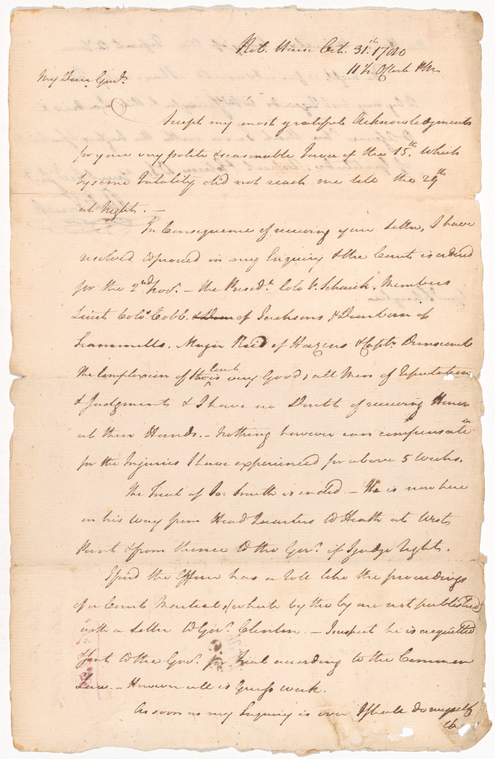 Rob. House Oct. 31.st 1780
11 O'Clock P.M.
My Dear Genl.
Accept my most grateful Acknowledgments
for your very polite & seasonable Favor of the 15.th which
by some Fatality did not reach me till the 29th
at Night. —
In Consequence of receiving your Letter, I have
resolved to proceed in my Enquiry & the Court is ordered
for the 2nd Nov. — the Presidt. Colo. V. Schaick, Members
Lieut Colos. Cobb of Jacksons & Dearborn of
Scammells. Major Reid of Hazens & Capt. Dunscomb
the Complexion of this Court is very Good, all Men of Reputation
& Judgment & I have no Doubt of receiving Honor
at their Hands. — Nothing however can compensate
for the Injuries I have experienced for above 5 Weeks.
The Trial of Jos. Smith is ended — He is now here
on his way from Head Quarters to Heath at West
Point & from thence to the Govr. if I judge right.
I find the Officer has a Role like the proceedings
of a Court Martial & which by the by are not published
with a Letter to Govr. Clinton. — I suspect he is acquitted
& sent to the Govr. for Trial according to the Common
Law. — However all is Guess work.
As soon as my Enquiry is over I shall do myself
the